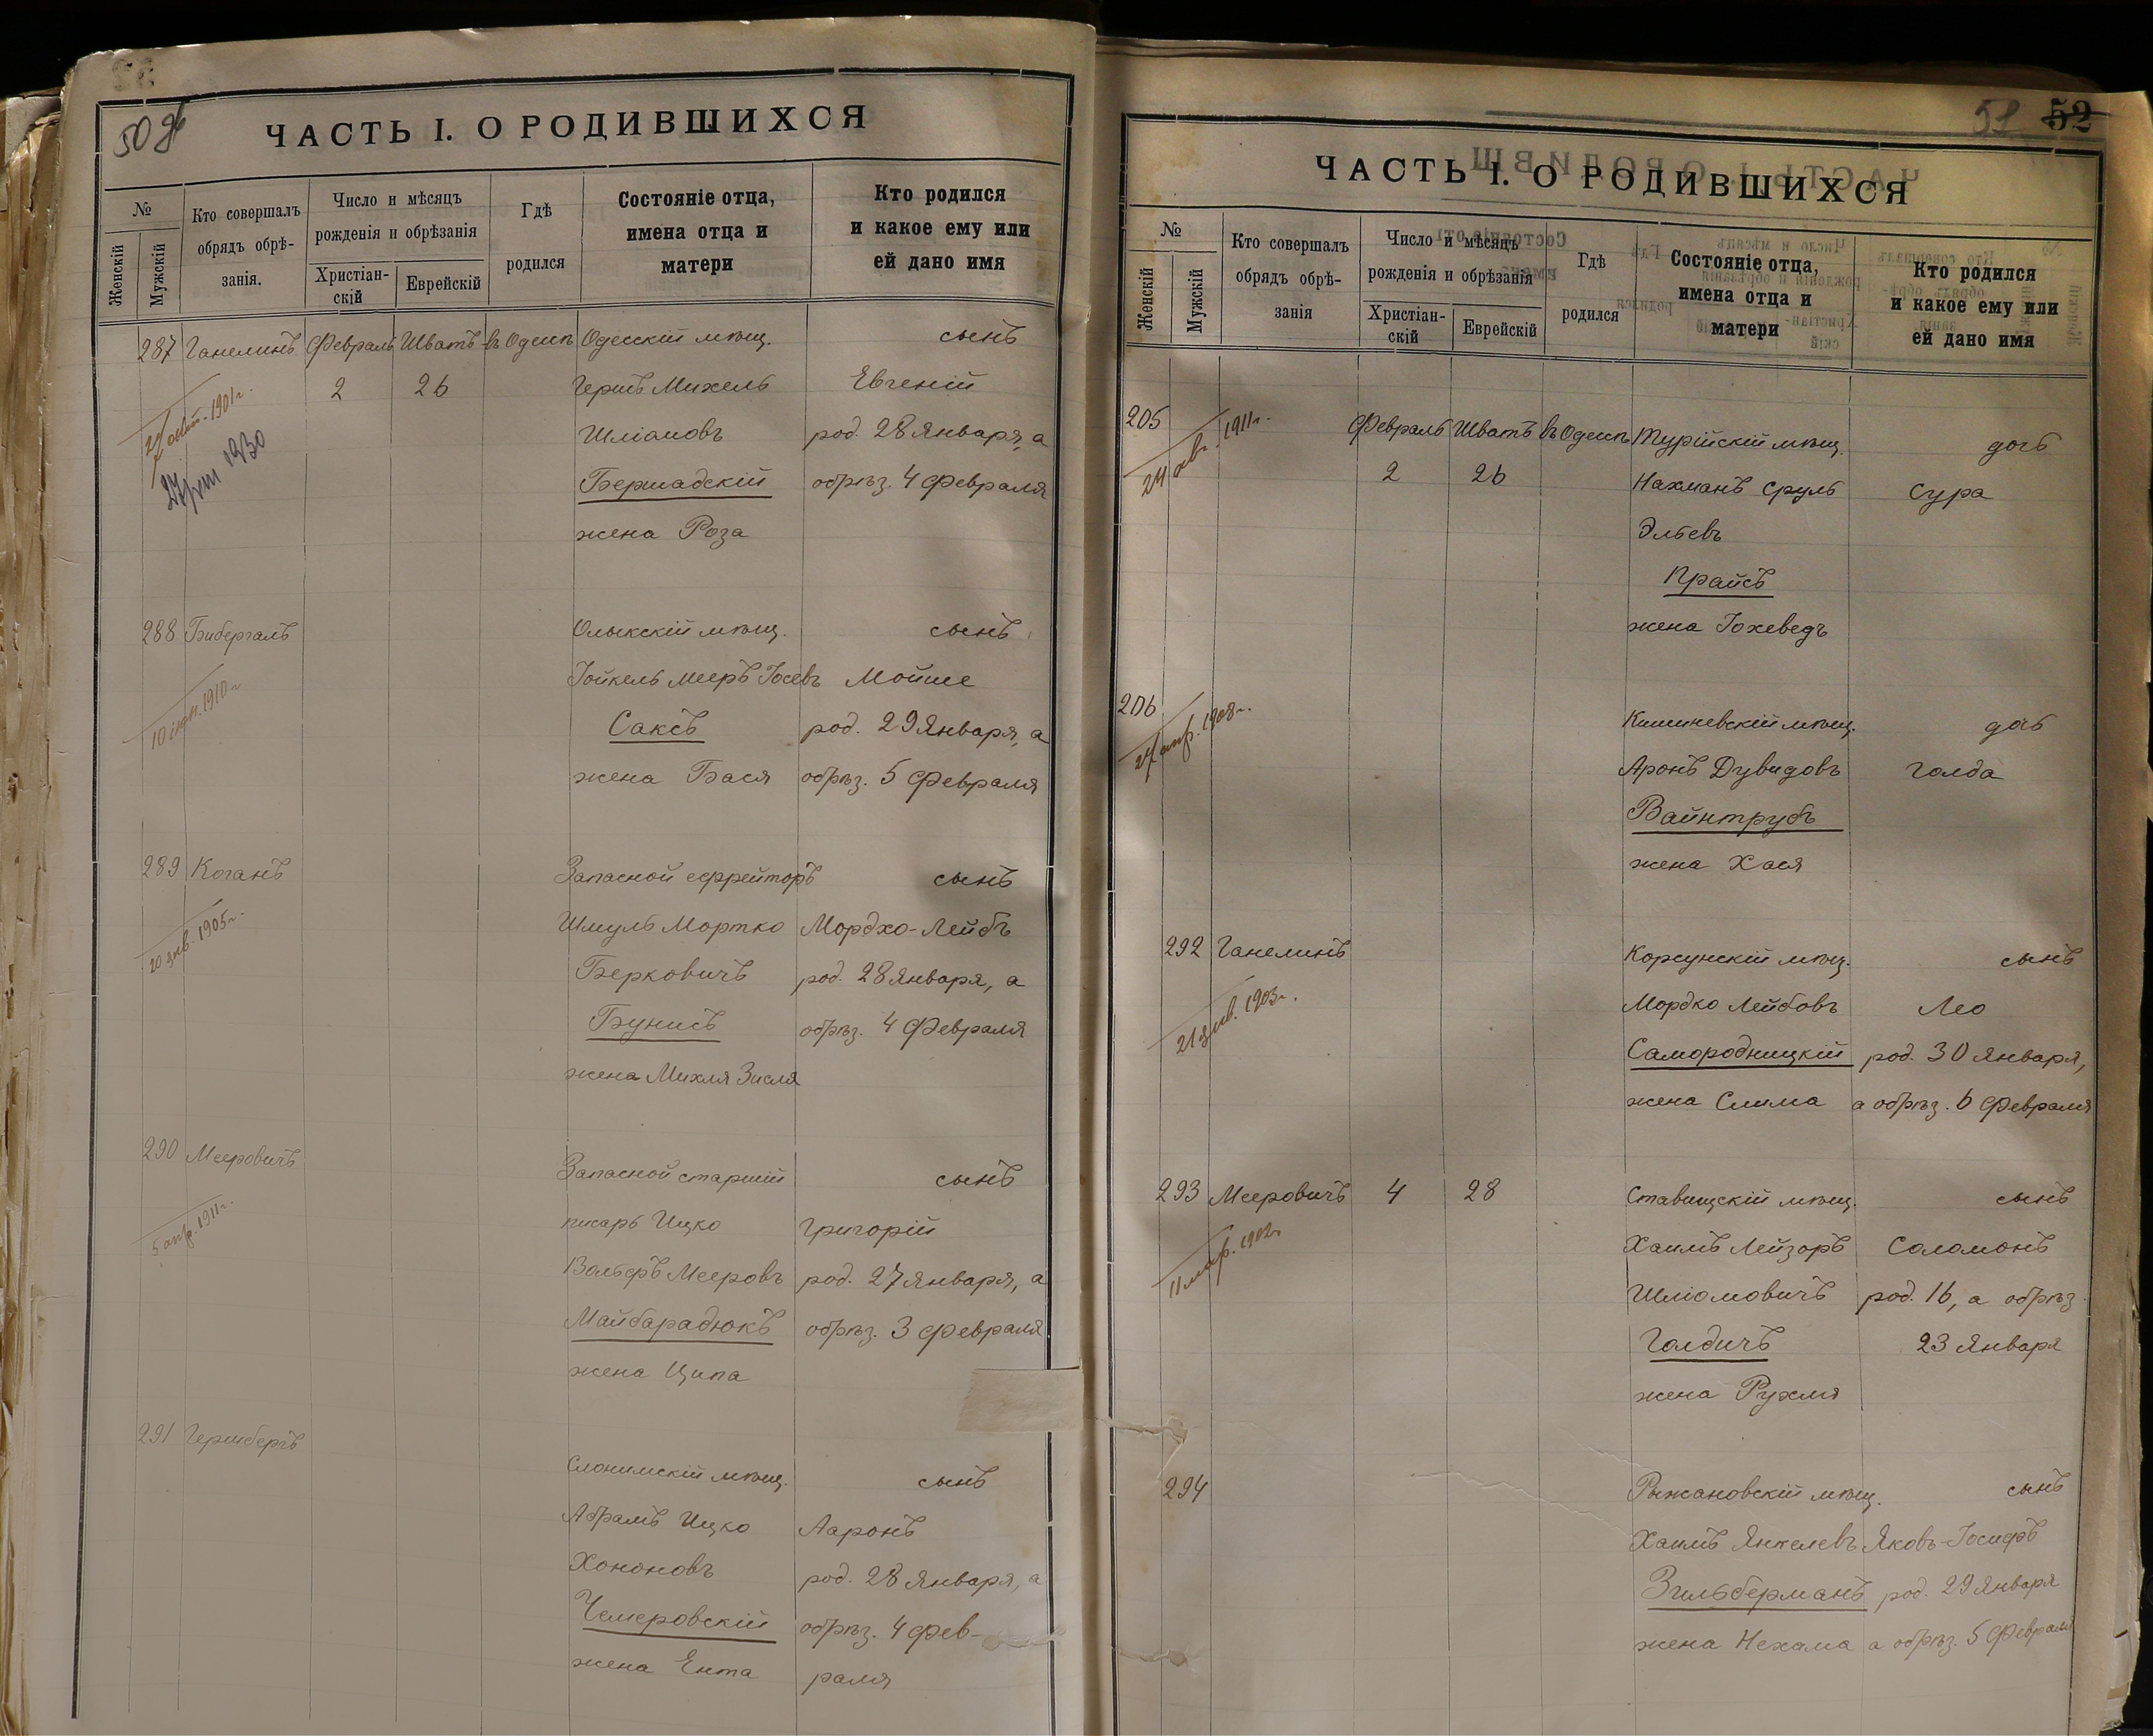 50 об
ЧАСТЬ I. О РОДИВШИХСЯ
№
Женскій
Мужскій
Кто совершалъ
обрядъ обрѣ-
занія.
Число и мѣсяцъ
рожденія и обрѣзанія
Христіан-
скій
Еврейскій
Гдѣ
родился
Состояніе отца,
имена отца и
матери
Кто родился
и какое ему или
ей дано имя
287 Ганелинъ Февраль Шватъ въ Одессѣ Одесскій мѣщ. сынъ
2 26 Гершъ Михель Евгеній
1901 г.
Шліомовъ род. 28 Января, а
1930
Бершадскій обрѣз. 4 Февраля
жена Роза
288 Бибергалъ Олыкскій мѣщ. сынъ
Іойкель Мееръ Іосевъ Мойше
10 1910 г.
Саксъ род. 29 Января, а
жена Бася обрѣз. 5 Февраля
289 Коганъ Запасной ефрейторъ сынъ
20 янв. 1905 г.
Шмуль Мортко Мордхо-Лейбъ
Берковичъ род. 28 Января, а
Бунисъ обрѣз. 4 Февраля
жена Михля Зисля
290 Мееровичъ Запасной старшій сынъ
5 апр. 1911 г.
писарь Ицко Григорій
Вольфъ Мееровъ род. 27 Января, а
Майбарадюкъ обрѣз. 3 Февраля
жена Ципа
291 Гершбергъ Слонимскій мѣщ. сынъ
Абрамъ Ицко Ааронъ
Хононовъ род. 28 Января, а
Чемеровскій обрѣз. 4 Фев-
жена Ента раля
51 52
ЧАСТЬ I. О РОДИВШИХСЯ
№
Женскій
Мужскій
Кто совершалъ
обрядъ обрѣ-
занія
Число и мѣсяцъ
рожденія и обрѣзанія
Христіан-
скій
Еврейскій
Гдѣ
родился
Состояніе отца,
имена отца и
матери
Кто родился
и какое ему или
ей дано имя
205 Февраль Шватъ въ Одессѣ Турійскій мѣщ. дочь
24 1911 г.
2 26 Нахманъ Сруль Сура
Эльевъ
Прайсъ
жена Іохеведъ
206 Кишиневскій мѣщ. дочь
24 апр. 1908 г.
Аронъ Дувидовъ Голда
Вайнтрубъ
жена Хася
292 Ганелинъ Корсунскій мѣщ. сынъ
21 янв. 1903 г.
Мордко Лейбовъ Лео
Самородницкій род. 30 Января,
жена Слима а обрѣз. 6 Февраля
293 Мееровичъ 4 28 Ставищскій мѣщ. сынъ
11 мар. 1902 г.
Хаимъ Лейзоръ Соломонъ
Шліомовичъ род. 16, а обрѣз.
Голдичъ 23 Января
жена Рухля
294 Рыжановскій мѣщ. сынъ
Хаимъ Янкелевъ Яковъ-Іосифъ
Зильберманъ род. 29 Января
жена Нехама а обрѣз. 5 Февраля